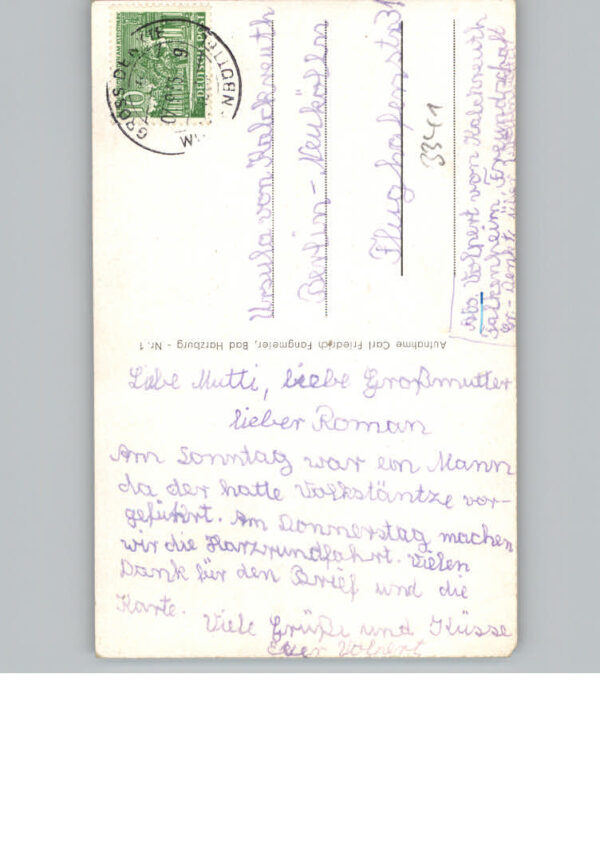 Liebe Mutti, liebe Großmutter
lieber Roman
Am Sonntag war ein Mann
da der hatte Volkstäntze vor-
geführt. Am Donnerstag machen
wir die Harzrundfahrt. Vielen
Dank für den Brief und die
Karte.
Viele Grüße und Küsse
Euer Volpert
Aufnahme Carl Friedrich Fangmeier, Bad Harzburg - Nr. 1
Ursula von Kalckreuth
Berlin-Neukölln
Flughafenstr 31
3341
Abs. Volpert von Kalckreuth
Falkenheim
10
GROSS DENKTE